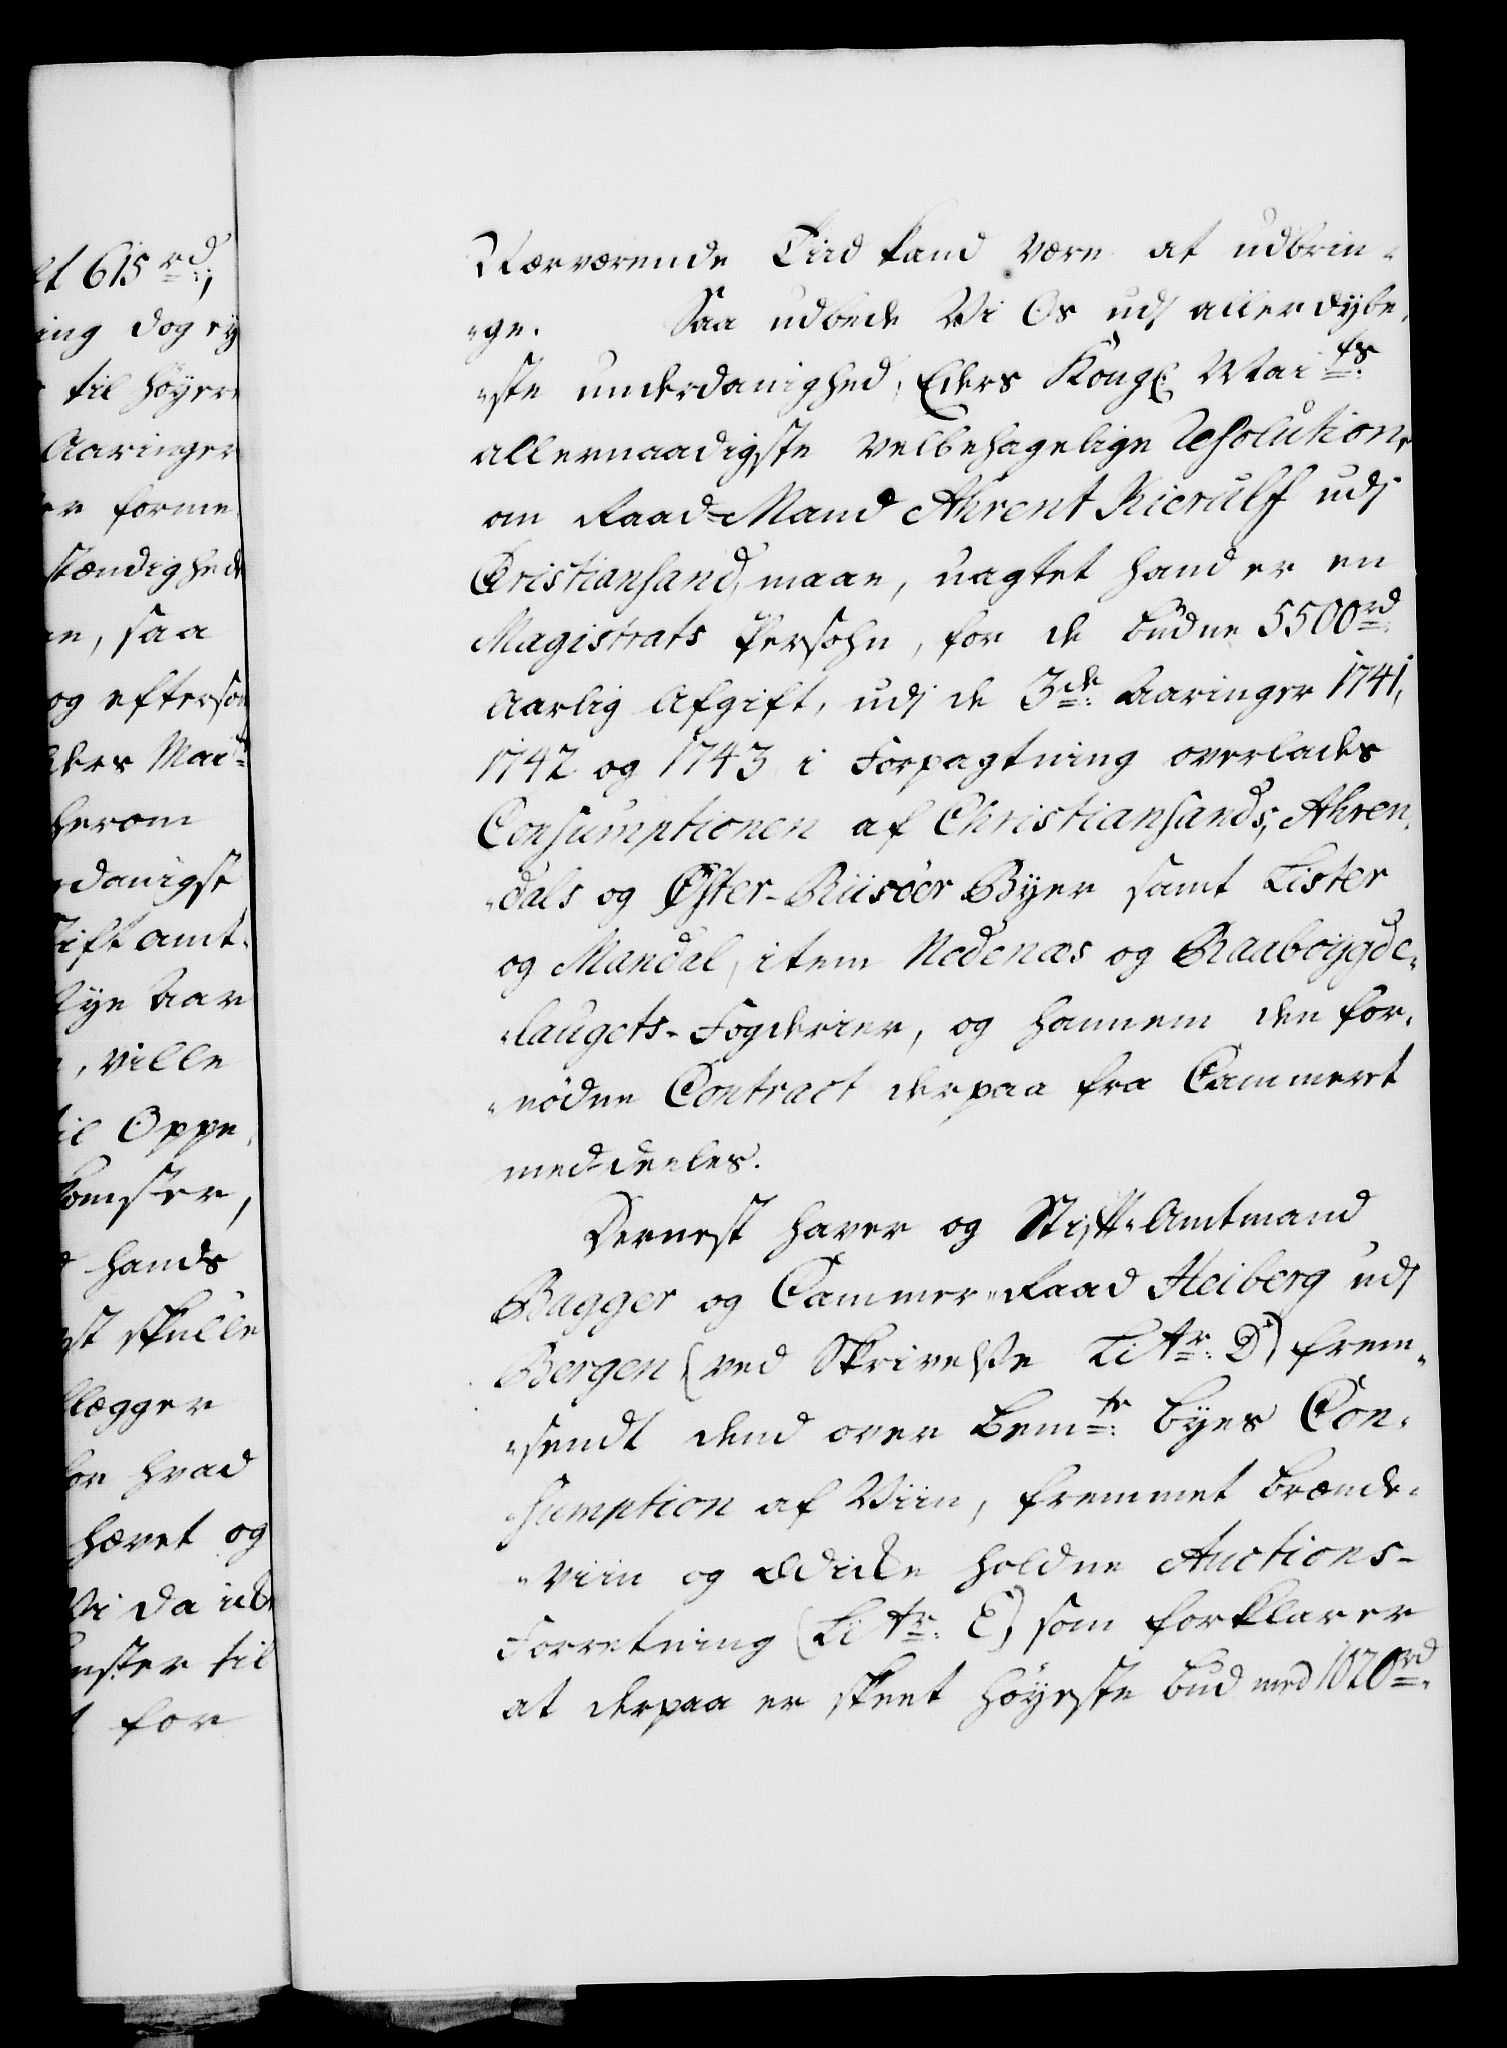 lt 615 rd:,
ing dog ey
til höyere
Aaringer
er forme
stændighede
en, saa
og eftersom
Eders Mai:
herom
danigst
Stiftamt-
Nye Aar
, ville
til Oppe,
komster,
hands
st skulle
lægger
for hvad
hævet og
Vi da ud
enster til
for
Nærværende Tiid kand være at udbrin-
-ge. Saa udbede Vi Os udj allerdybe-
-ste underdanighed, Eders Kongl. Mai ts
allernaadigste velbehagelige Resolution,
om Raad-Mand Ahrent Kierulf udj
Cristiansand, maae, uagtet hand er en
Magistrats Persohn, for de budne 5500 rd:
Aarlig Afgift, udj de 3de: Aaringer 1741,
1742 og 1743 i Forpagtning overlades
Consumptionen af Christiansands, Ahren-
-dals og Øster-Riisöer Byer samt Lister
og Mandal, item Nedenæs og Raaboygde-
-laugets-Fogderier, og hannem den for-
-nödne Contract derpaa fra Cammeret
med-deeles.
Dernest haver og Stift-Amtmand
Bagger og Cammer-Raad Heiberg udj
Bergen (ved Skrivelse Litr: D) frem-
-sendt dend over bemte: Byes Con-
-sumption af Viin, fremmet Brænde-
-viin og Ædicke holdne Auctions-
Forretning (Litr: E) som forklarer
at derpaa er skeet höyeste bud med 1020 rd: